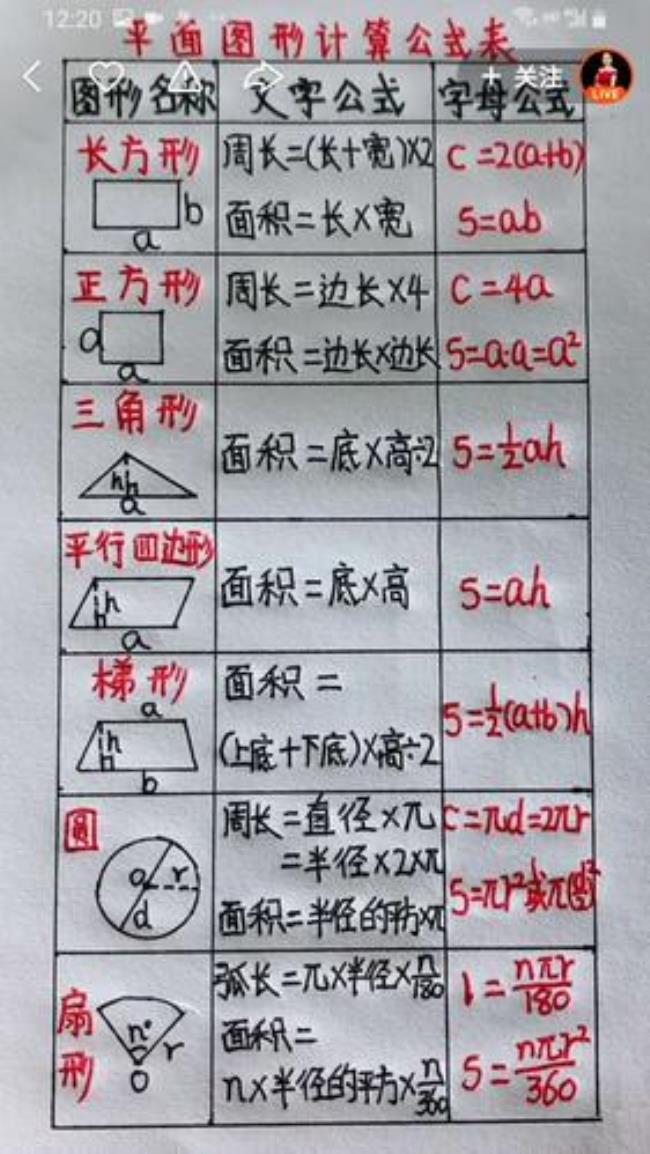 12:20
平面图形计算公式表
+ 关注
LIVE
图形名称 文字公式 字母公式
长方形 周长=(长+宽)×2 C=2(a+b)
b
a
面积=长×宽 S=ab
正方形 周长=边长×4 C=4a
a
a
面积=边长×边长 S=a·a=a²
三角形
h
a
面积=底×高÷2 S=½ah
平行四边形
h
a
面积=底×高 S=ah
梯形
a
h
b
面积=
(上底+下底)×高÷2
S=½(a+b)h
圆
o r
d
周长=直径×π C=πd=2πr
=半径×2×π
面积=半径的平方×π S=πr²或
扇形
n°
r
O
弧长=π×半径×n/180 l=nπr/180
面积=
n×半径的平方×n/360 S=nπr²/360